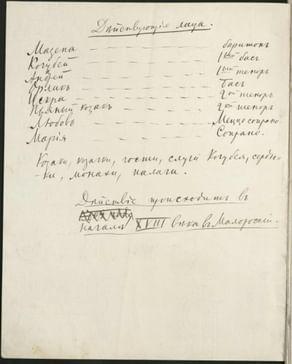 Дѣйствующія лица.
Мазепа — баритонъ
Кочубей — 1ый басъ
Андрей — 1ый теноръ
Орликъ — басъ
Искра — 2ой теноръ
Пьяный козакъ — 2ой теноръ
Любовь — Меццо сопрано
Марія — Сопрано.
Козаки, козачки, гости, слуги Кочубея, сердю-
ки, монахи, палачи.
Дѣйствіе происходитъ въ
началѣ XVIII вѣка въ Малороссіи.